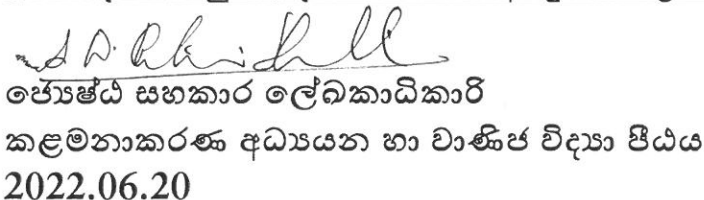 ජ්‍යෙෂ්ඨ සහකාර ලේඛකාධිකාරි
කළමනාකරණ අධ්‍යයන හා වාණිජ විද්‍යා පීඨය
2022.06.20